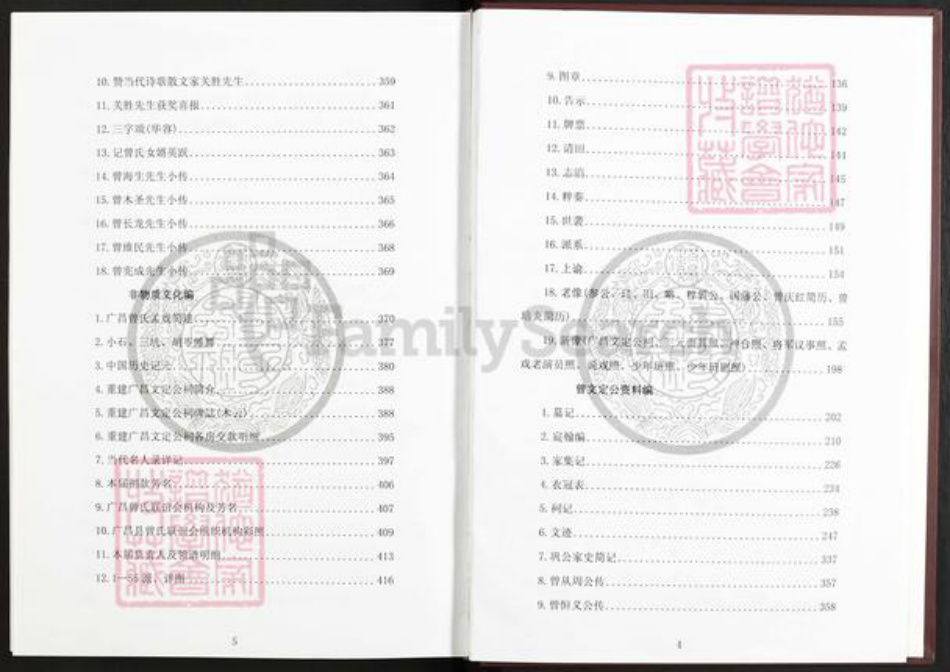 9. 图章 136
10. 告示 139
11. 牌票 142
12. 请田 144
13. 志铭 145
14. 粹奏 147
15. 世袭 149
16. 派系 151
17. 上谕 154
培炎简历) 155
戏老演员照、 198
曾文定公资料编
1. 墓记 202
2. 宸翰编 210
3. 家集记 226
4. 衣冠表 234
5. 祠记 238
6. 文迹 247
7. 巩公家史简记 337
8. 曾从周公传 357
9. 曾恒义公传 358
4
10. 赞当代诗歌散文家关胜先生 359
11. 关胜先生获奖喜报 361
12. 三字 362
13. 记曾氏女婿英跃 363
14. 曾海生先生小传 364
15. 曾木圣先生小传 365
16. 曾长龙先生小传 366
17. 曾维民先生小传 368
18. 曾宪成先生小传 369
非物质文化编
1. 广昌曾氏孟戏简述 370
2. 小石、三坑、 377
3. 中国历史记元 380
4. 重建广昌文定公祠简介 388
5. 重建广昌文定公祠碑誌 388
6. 重建广昌文定公祠各房交款明细 395
7. 当代名人录详记 397
8. 本届捐款芳名 406
9. 广昌曾氏联谊会机构及芳名 407
10. 广昌县曾氏联谊会组织机构彩照 409
11. 本届负责人及领谱明细 413
12. 1—55 派、详图 416
5
FamilySearch